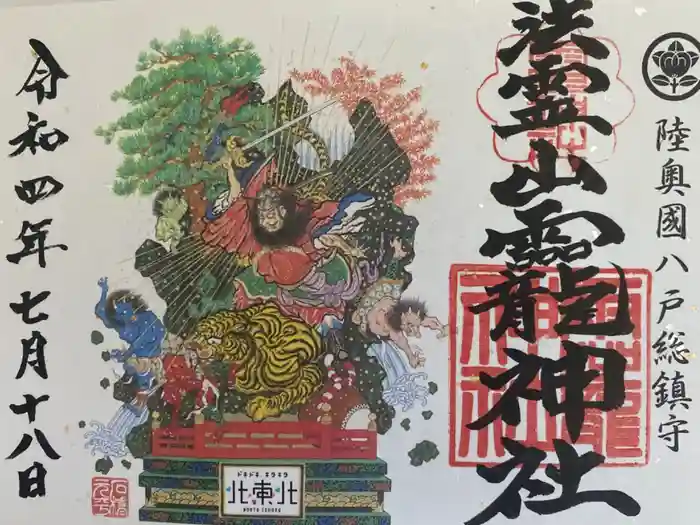 陸奥國八戸総鎮守
法霊山龗神社
令和四年七月十八日
ドキドキ、キラキラ
北・東北
NORTH TOHOKU